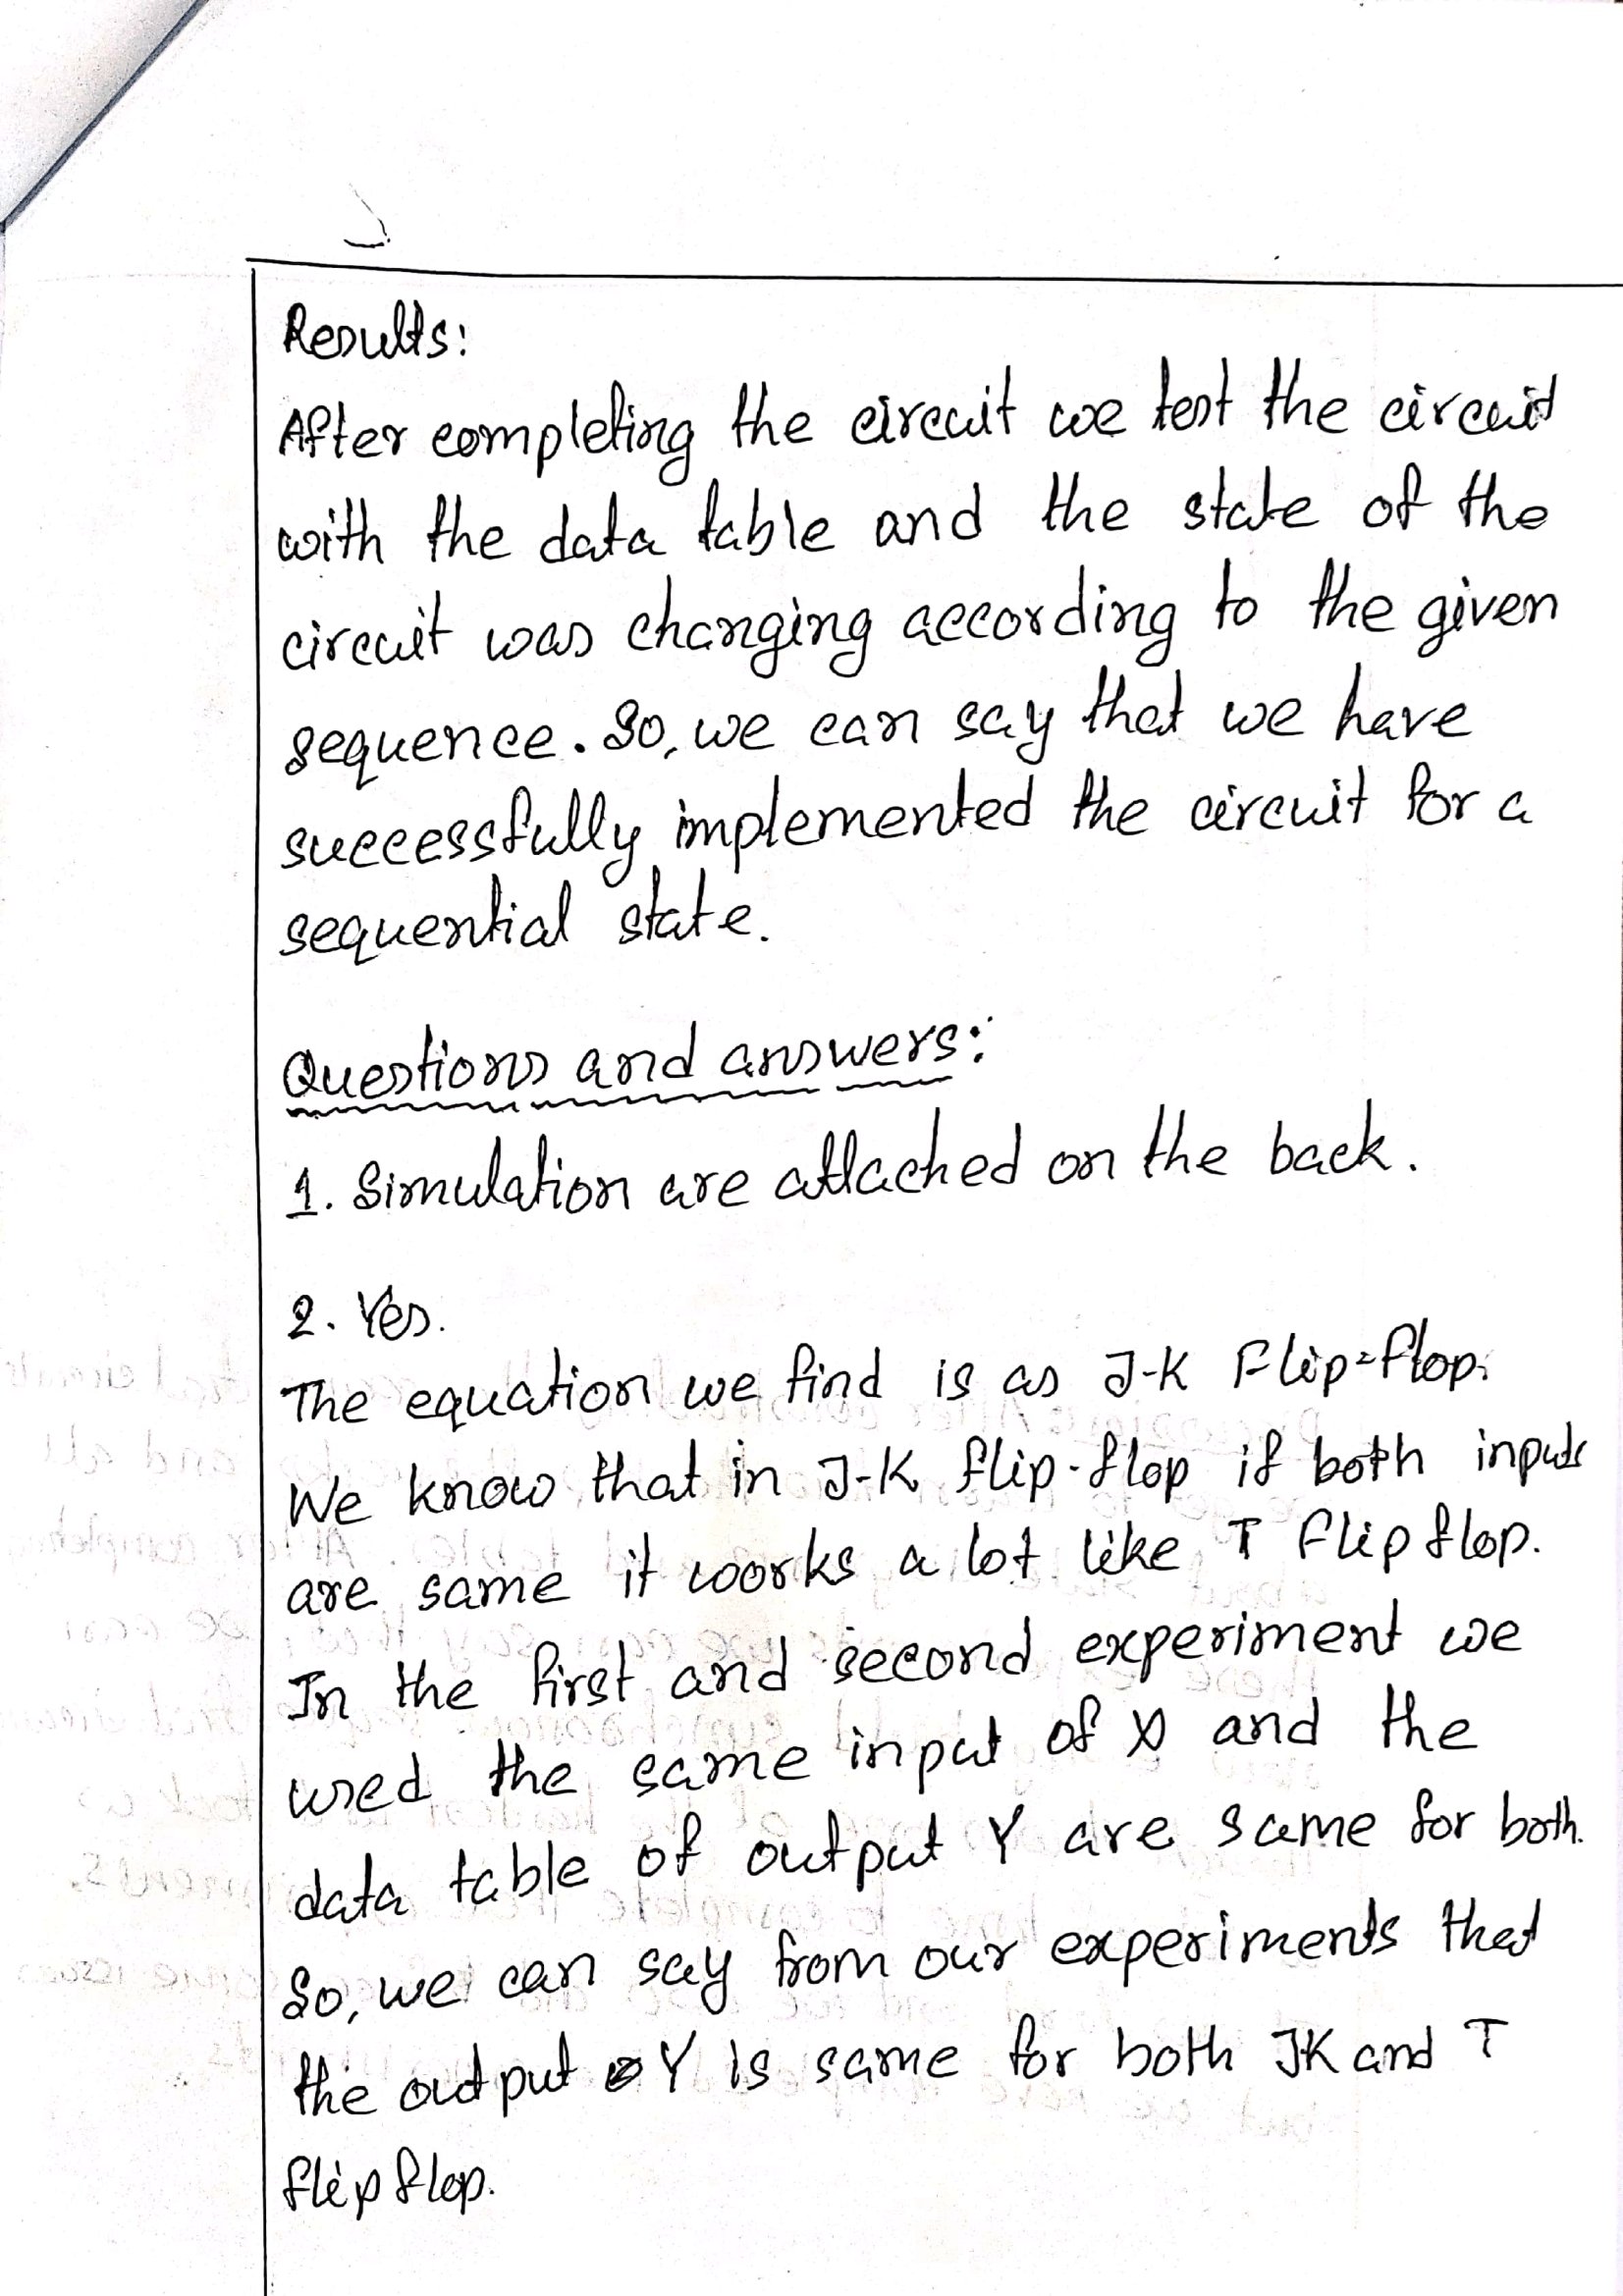 Results:
After completing the circuit we test the circuit
with the data table and the state of the
circuit was changing according to the given
sequence. So, we can say that we have
successfully implemented the circuit for a
sequential state.
Questions and answers:
1. Simulation are attached on the back.
2. Yes.
The equation we find is as J-K Flip-flop.
We know that in J-K flip-flop if both inputs
are same it woorks a lot like T flip flop.
In the first and second experiment we
used the same input of X and the
data table of output Y are same for both.
So, we can say from our experiments that
the output Y is same for both JK and T
flip flop.